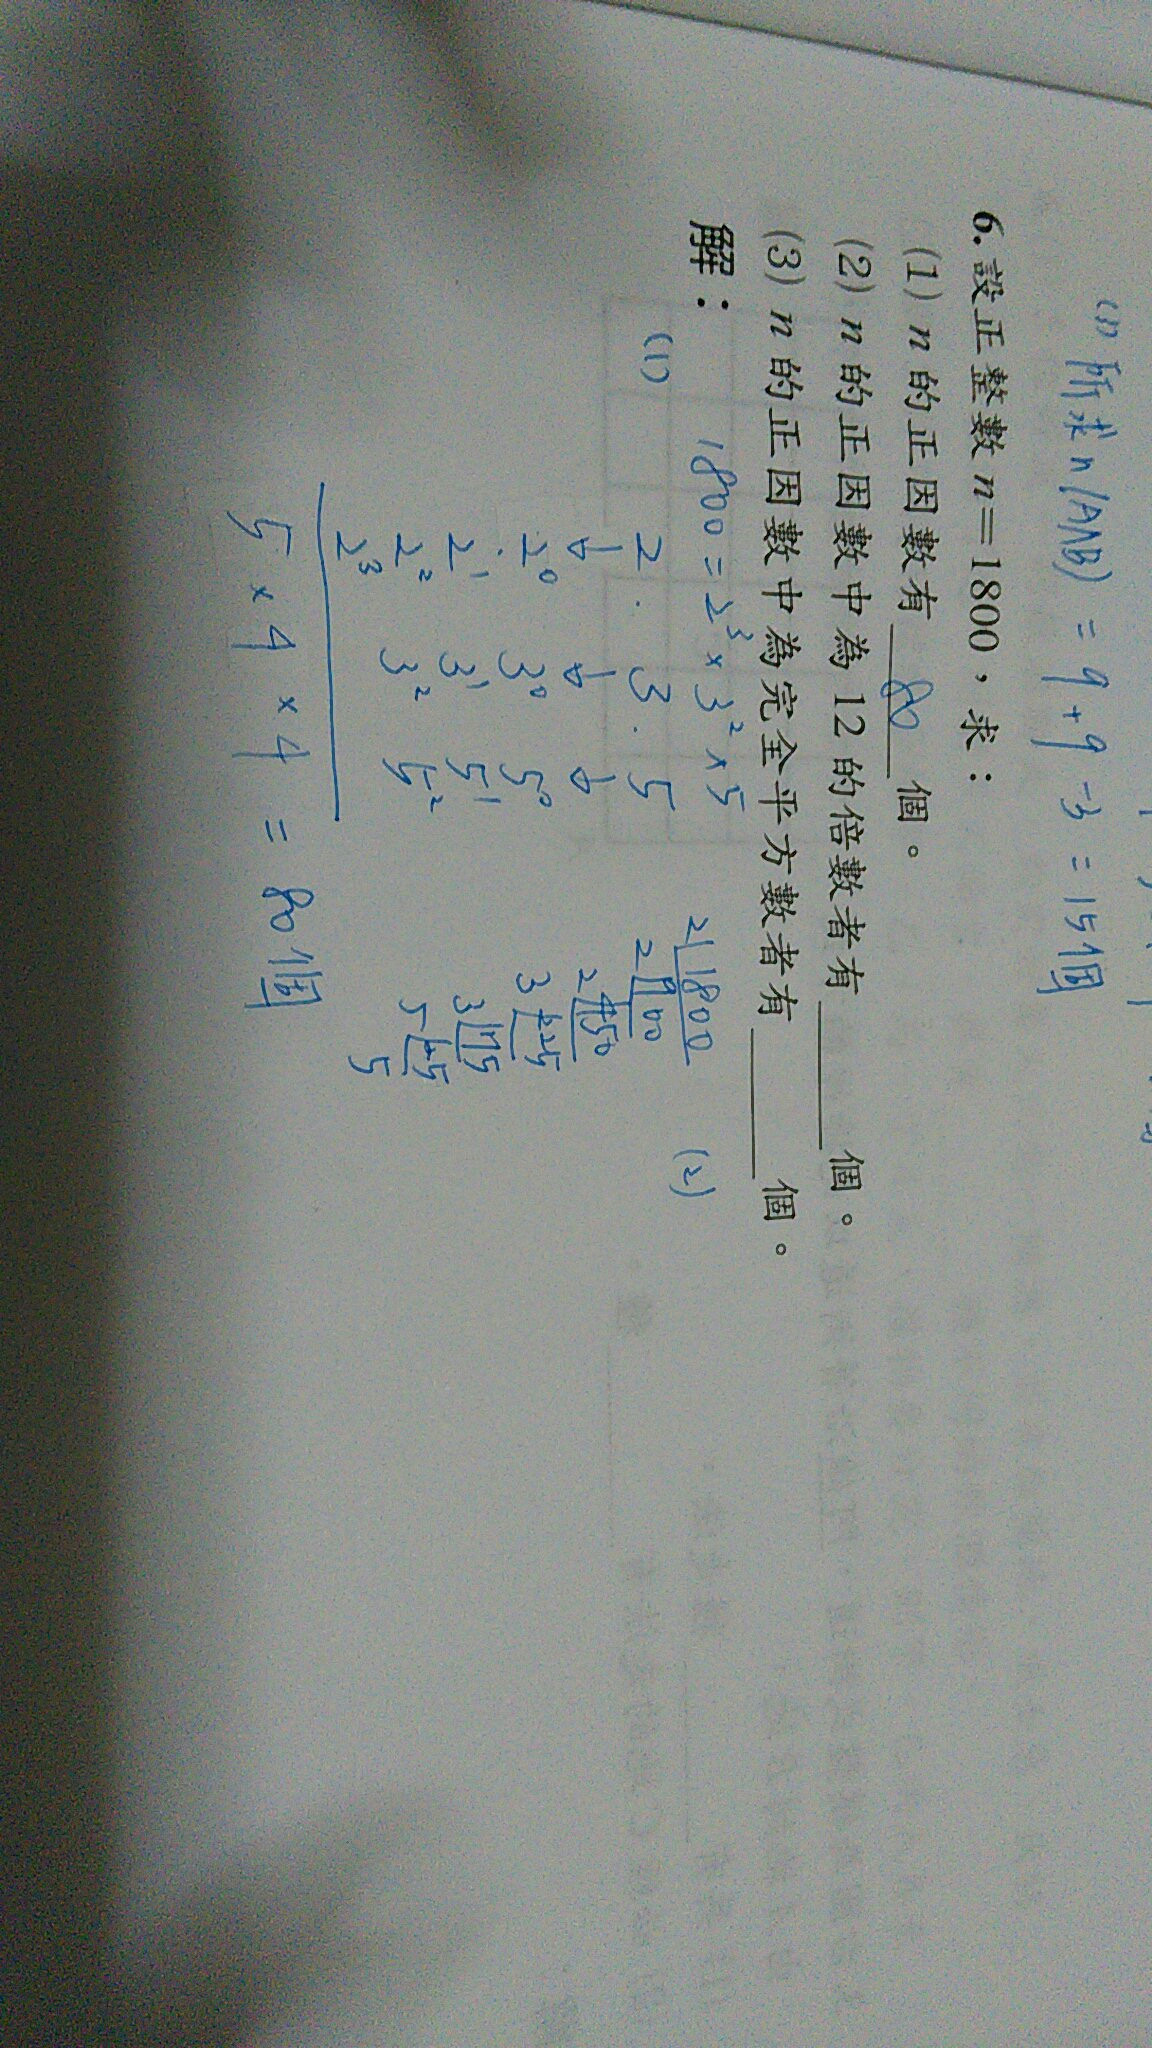 (1) 所求 n(A∩B) = 9 + 9 - 3 = 15個
6. 設正整數 n=1800，求：
(1) n 的正因數有 80 個。
(2) n 的正因數中為 12 的倍數者有 ＿＿＿ 個。
(3) n 的正因數中為完全平方數者有 ＿＿＿ 個。
解：
1800 = 2³ × 3² × 5
(1)
2 . 3 . 5
↓ ↓ ↓
2⁰ 3⁰ 5⁰
2¹ 3¹ 5¹
2² 3² 5²
2³
5 × 4 × 4 = 80個
2 1800
2 900
2 450
3 225
3 75
5 25
5
(2)